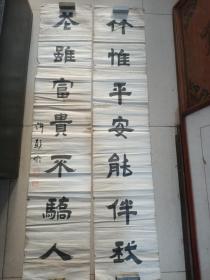 竹惟平安能伴我
花雖富貴不驕人